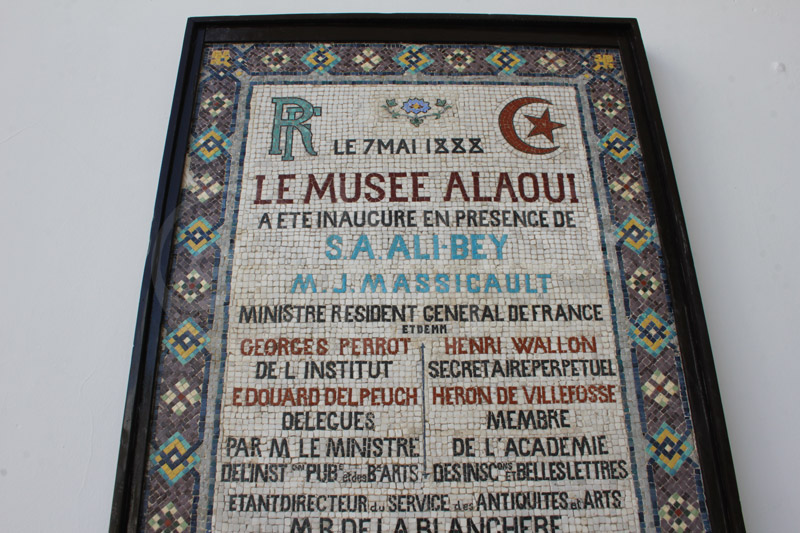 RF
LE 7 MAI 1888
LE MUSEE ALAOUI
A ETE INAUGURE EN PRESENCE DE
S.A. ALI·BEY
M.J. MASSICAULT
MINISTRE RESIDENT GENERAL DE FRANCE
ET DE MM
GEORGES PERROT
DE L INSTITUT
EDOUARD DELPEUCH
DELEGUES
PAR M. LE MINISTRE
DE L'INSTon PUBe et des Bx ARTS
HENRI WALLON
SECRETAIRE PERPETUEL
HERON DE VILLEFOSSE
MEMBRE
DE L'ACADEMIE
DES INSCons ET BELLES LETTRES
ETANT DIRECTEUR du SERVICE des ANTIQUITES et ARTS
M.R. DE LA BLANCHERE